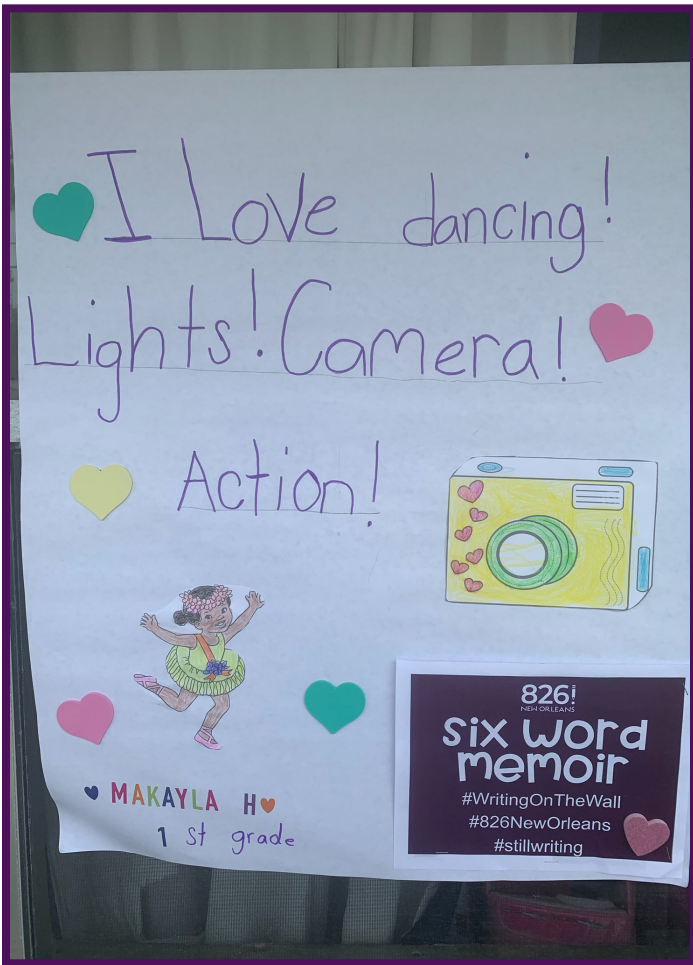 I Love dancing!
Lights! Camera!
Action!
MAKAYLA H
1 st grade
826!
NEW ORLEANS
six word
memoir
#WritingOnTheWall
#826NewOrleans
#stillwriting